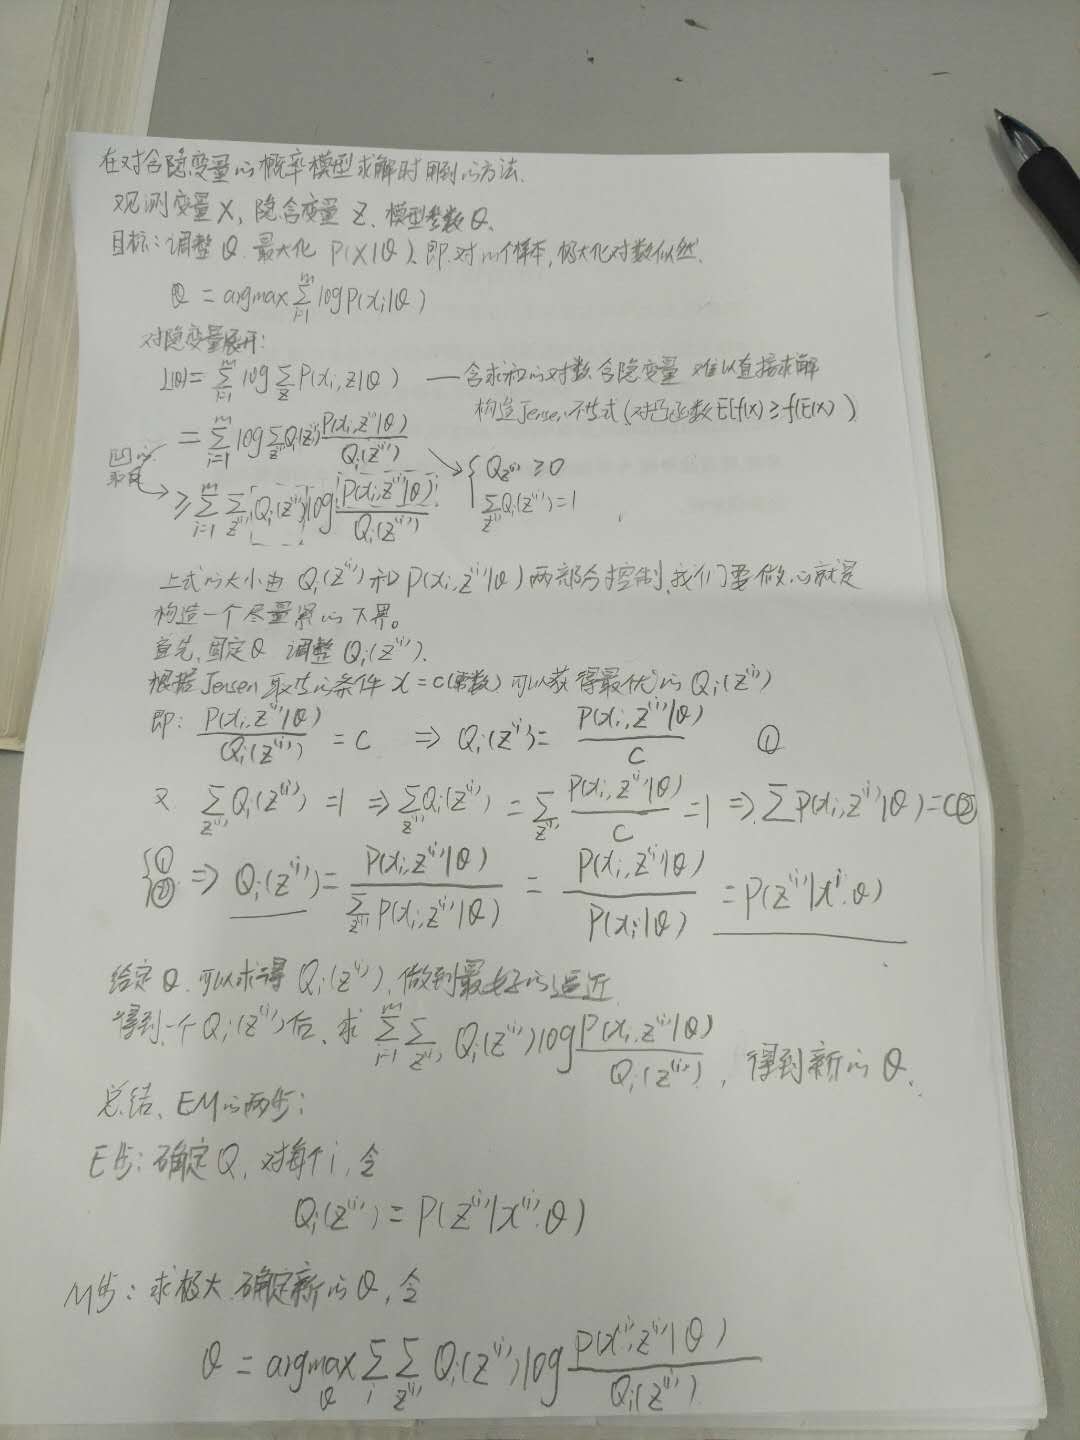 在对含隐变量的概率模型求解时用到的方法.
观测变量X, 隐含变量Z、模型参数θ、
目标:调整θ. 最大化 P(X|θ)、即.对m个样本,极大化对数似然.
θ = argmax Σ_{i=1}^{m} log P(x_i|θ)
对隐变量展开:
L(θ) = Σ_{i=1}^{m} log Σ_z P(x_i, z|θ) —— 含求和的对数.含隐变量 难以直接求解
构造Jensen不等式(对凸函数E[f(x)] ≥ f(E(x))
= Σ_{i=1}^{m} log Σ_{z^{(i)}} Q_i(z^{(i)}) P(x_i, z^{(i)}|θ) / Q_i(z^{(i)})
{ Q_{z^{(i)}} ≥ 0
≥ Σ_{i=1}^{m} Σ_{z^{(i)}} Q_i(z^{(i)}) log P(x_i, z^{(i)}|θ) / Q_i(z^{(i)})
Σ_{z^{(i)}} Q_i(z^{(i)}) = 1
上式的大小由 Q_i(z^{(i)}) 和 P(x_i, z^{(i)}|θ) 两部分控制,我们要做的就是
构造一个尽量紧的下界。
首先,固定θ 调整 Q_i(z^{(i)}).
根据Jensen 取等的条件 x = c(常数) 可以获得最优的 Q_i(z^{(i)})
即: P(x_i, z^{(i)}|θ) / Q_i(z^{(i)}) = c ⇒ Q_i(z^{(i)}) = P(x_i, z^{(i)}|θ) / c ①
又 Σ_{z^{(i)}} Q_i(z^{(i)}) = 1 ⇒ Σ_{z^{(i)}} Q_i(z^{(i)}) = Σ_{z^{(i)}} P(x_i, z^{(i)}|θ) / c = 1 ⇒ Σ P(x_i, z^{(i)}|θ) = c ②
{① ② ⇒ Q_i(z^{(i)}) = P(x_i, z^{(i)}|θ) / Σ_{z^{(i)}} P(x_i, z^{(i)}|θ) = P(x_i, z^{(i)}|θ) / P(x_i|θ) = P(z^{(i)}|x^i.θ)
给定θ 可以求得 Q_i(z^{(i)}), 做到最好的逼近
得到一个Q_i(z^{(i)})后、求 Σ_{i=1}^{m} Σ_{z^{(i)}} Q_i(z^{(i)}) log P(x_i, z^{(i)}|θ) / Q_i(z^{(i)}) , 得到新的θ、
总结、EM的两步:
E步: 确定Q、对每个i,令
Q_i(z^{(i)}) = P(z^{(i)}|x^{(i)}.θ)
M步: 求极大.确定新的θ,令
θ = argmax_θ Σ_i Σ_{z^{(i)}} Q_i(z^{(i)}) log P(x^{(i)}, z^{(i)}|θ) / Q_i(z^{(i)})